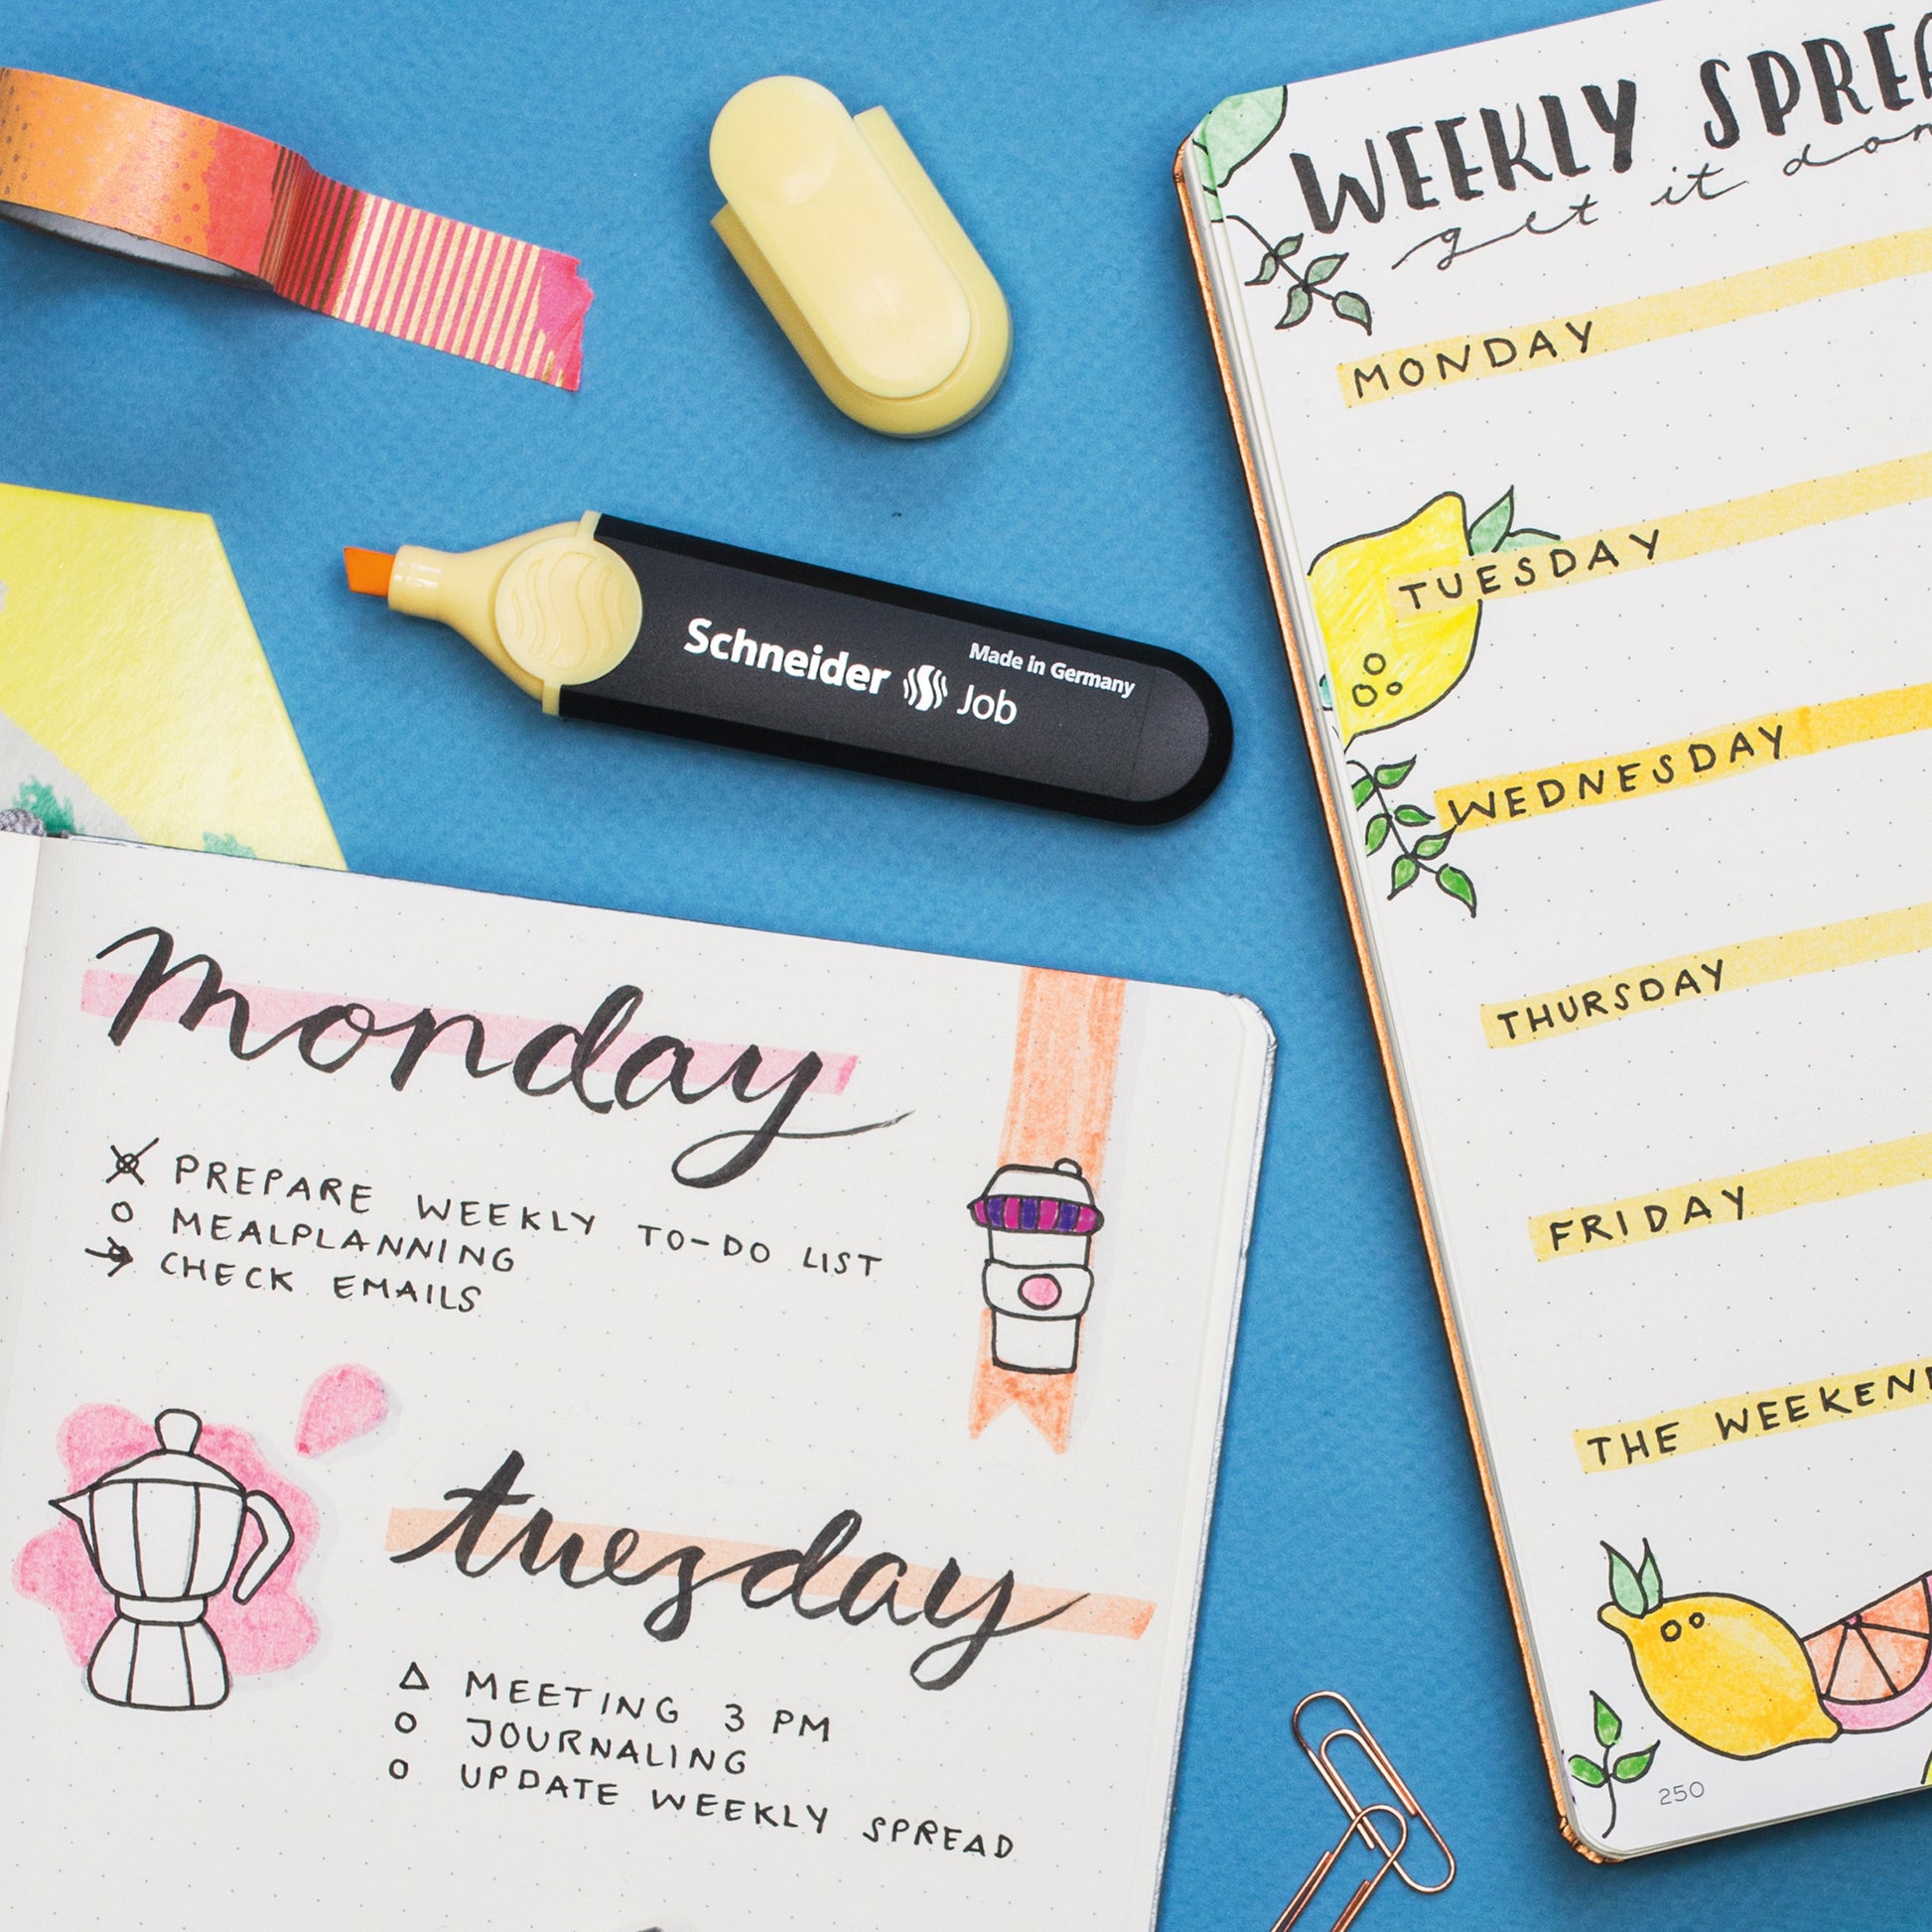 Schneider Job
Made in Germany
monday
PREPARE WEEKLY TO-DO LIST
MEALPLANNING
CHECK EMAILS
tuesday
MEETING 3 PM
JOURNALING
UPDATE WEEKLY SPREAD
WEEKLY SPREA
get it don
MONDAY
TUESDAY
WEDNESDAY
THURSDAY
FRIDAY
THE WEEKEN
250